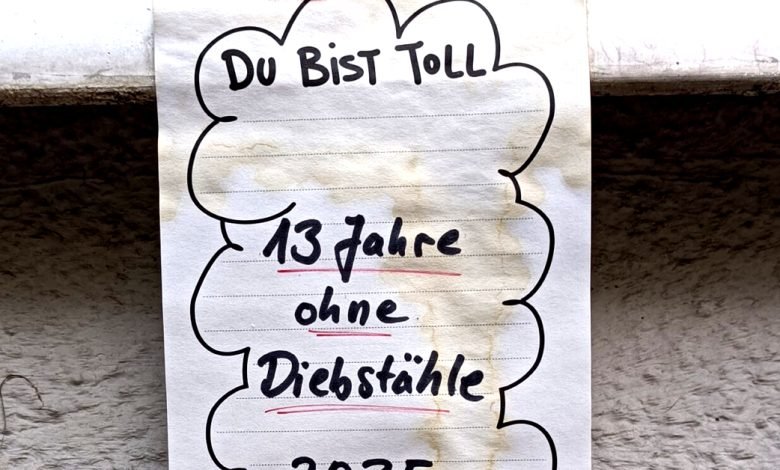 Du Bist Toll
13 Jahre
ohne
Diebstähle
2025